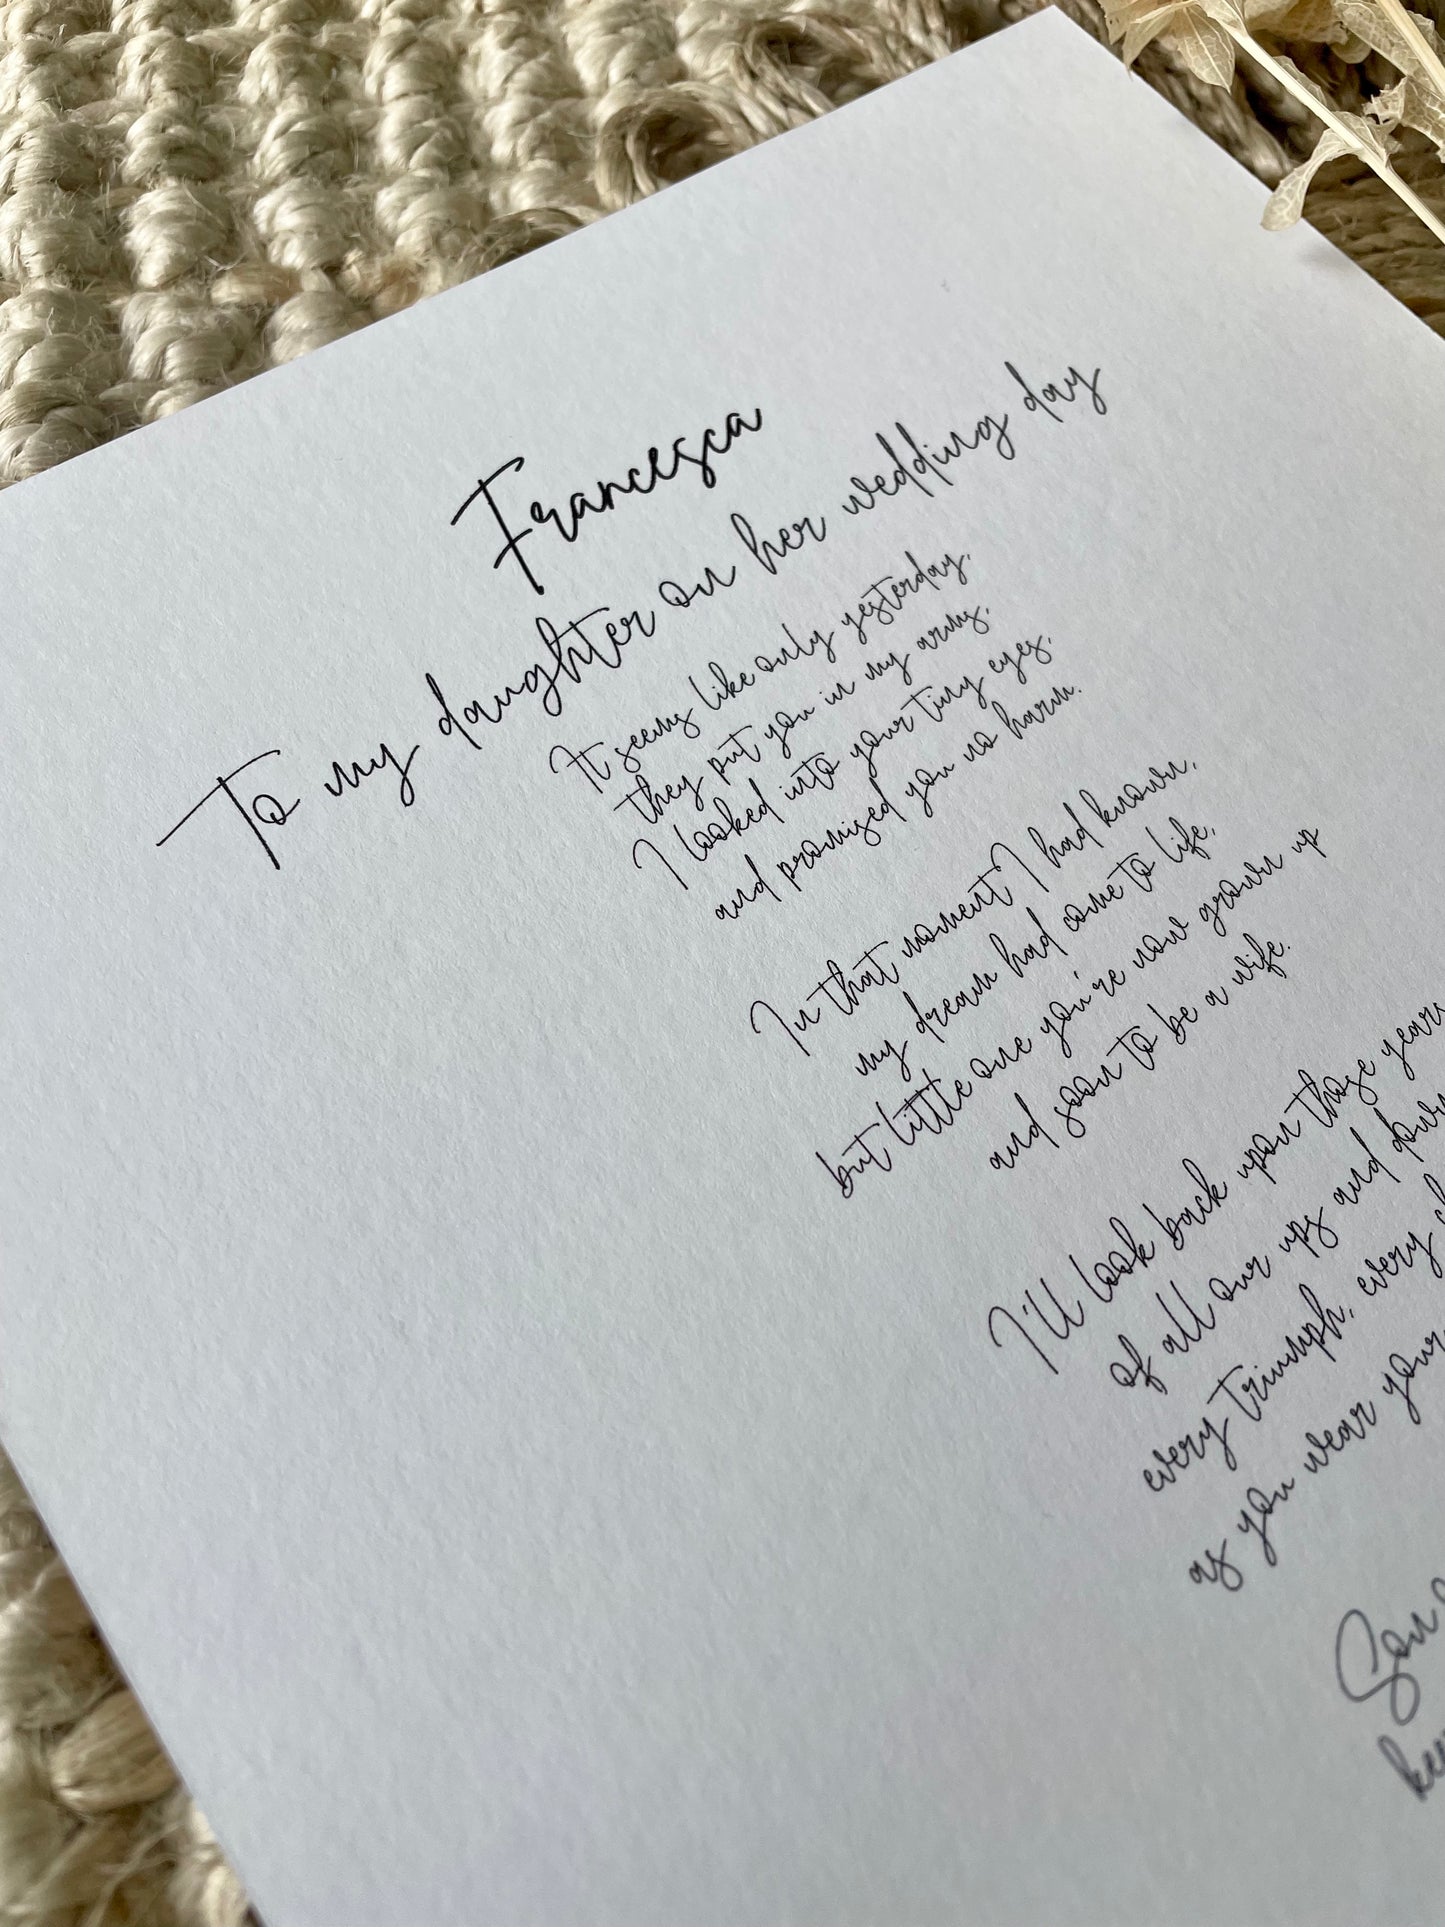 Francesca
To my daughter on her wedding day
It seems like only yesterday,
they put you in my arms,
I looked into your tiny eyes,
and promised you no harm.
In that moment I had known,
my dream had come to life,
but little one you're now grown up
and soon to be a wife.
I'll look back upon those years
of all our ups and down
every triumph, every
as you wear your